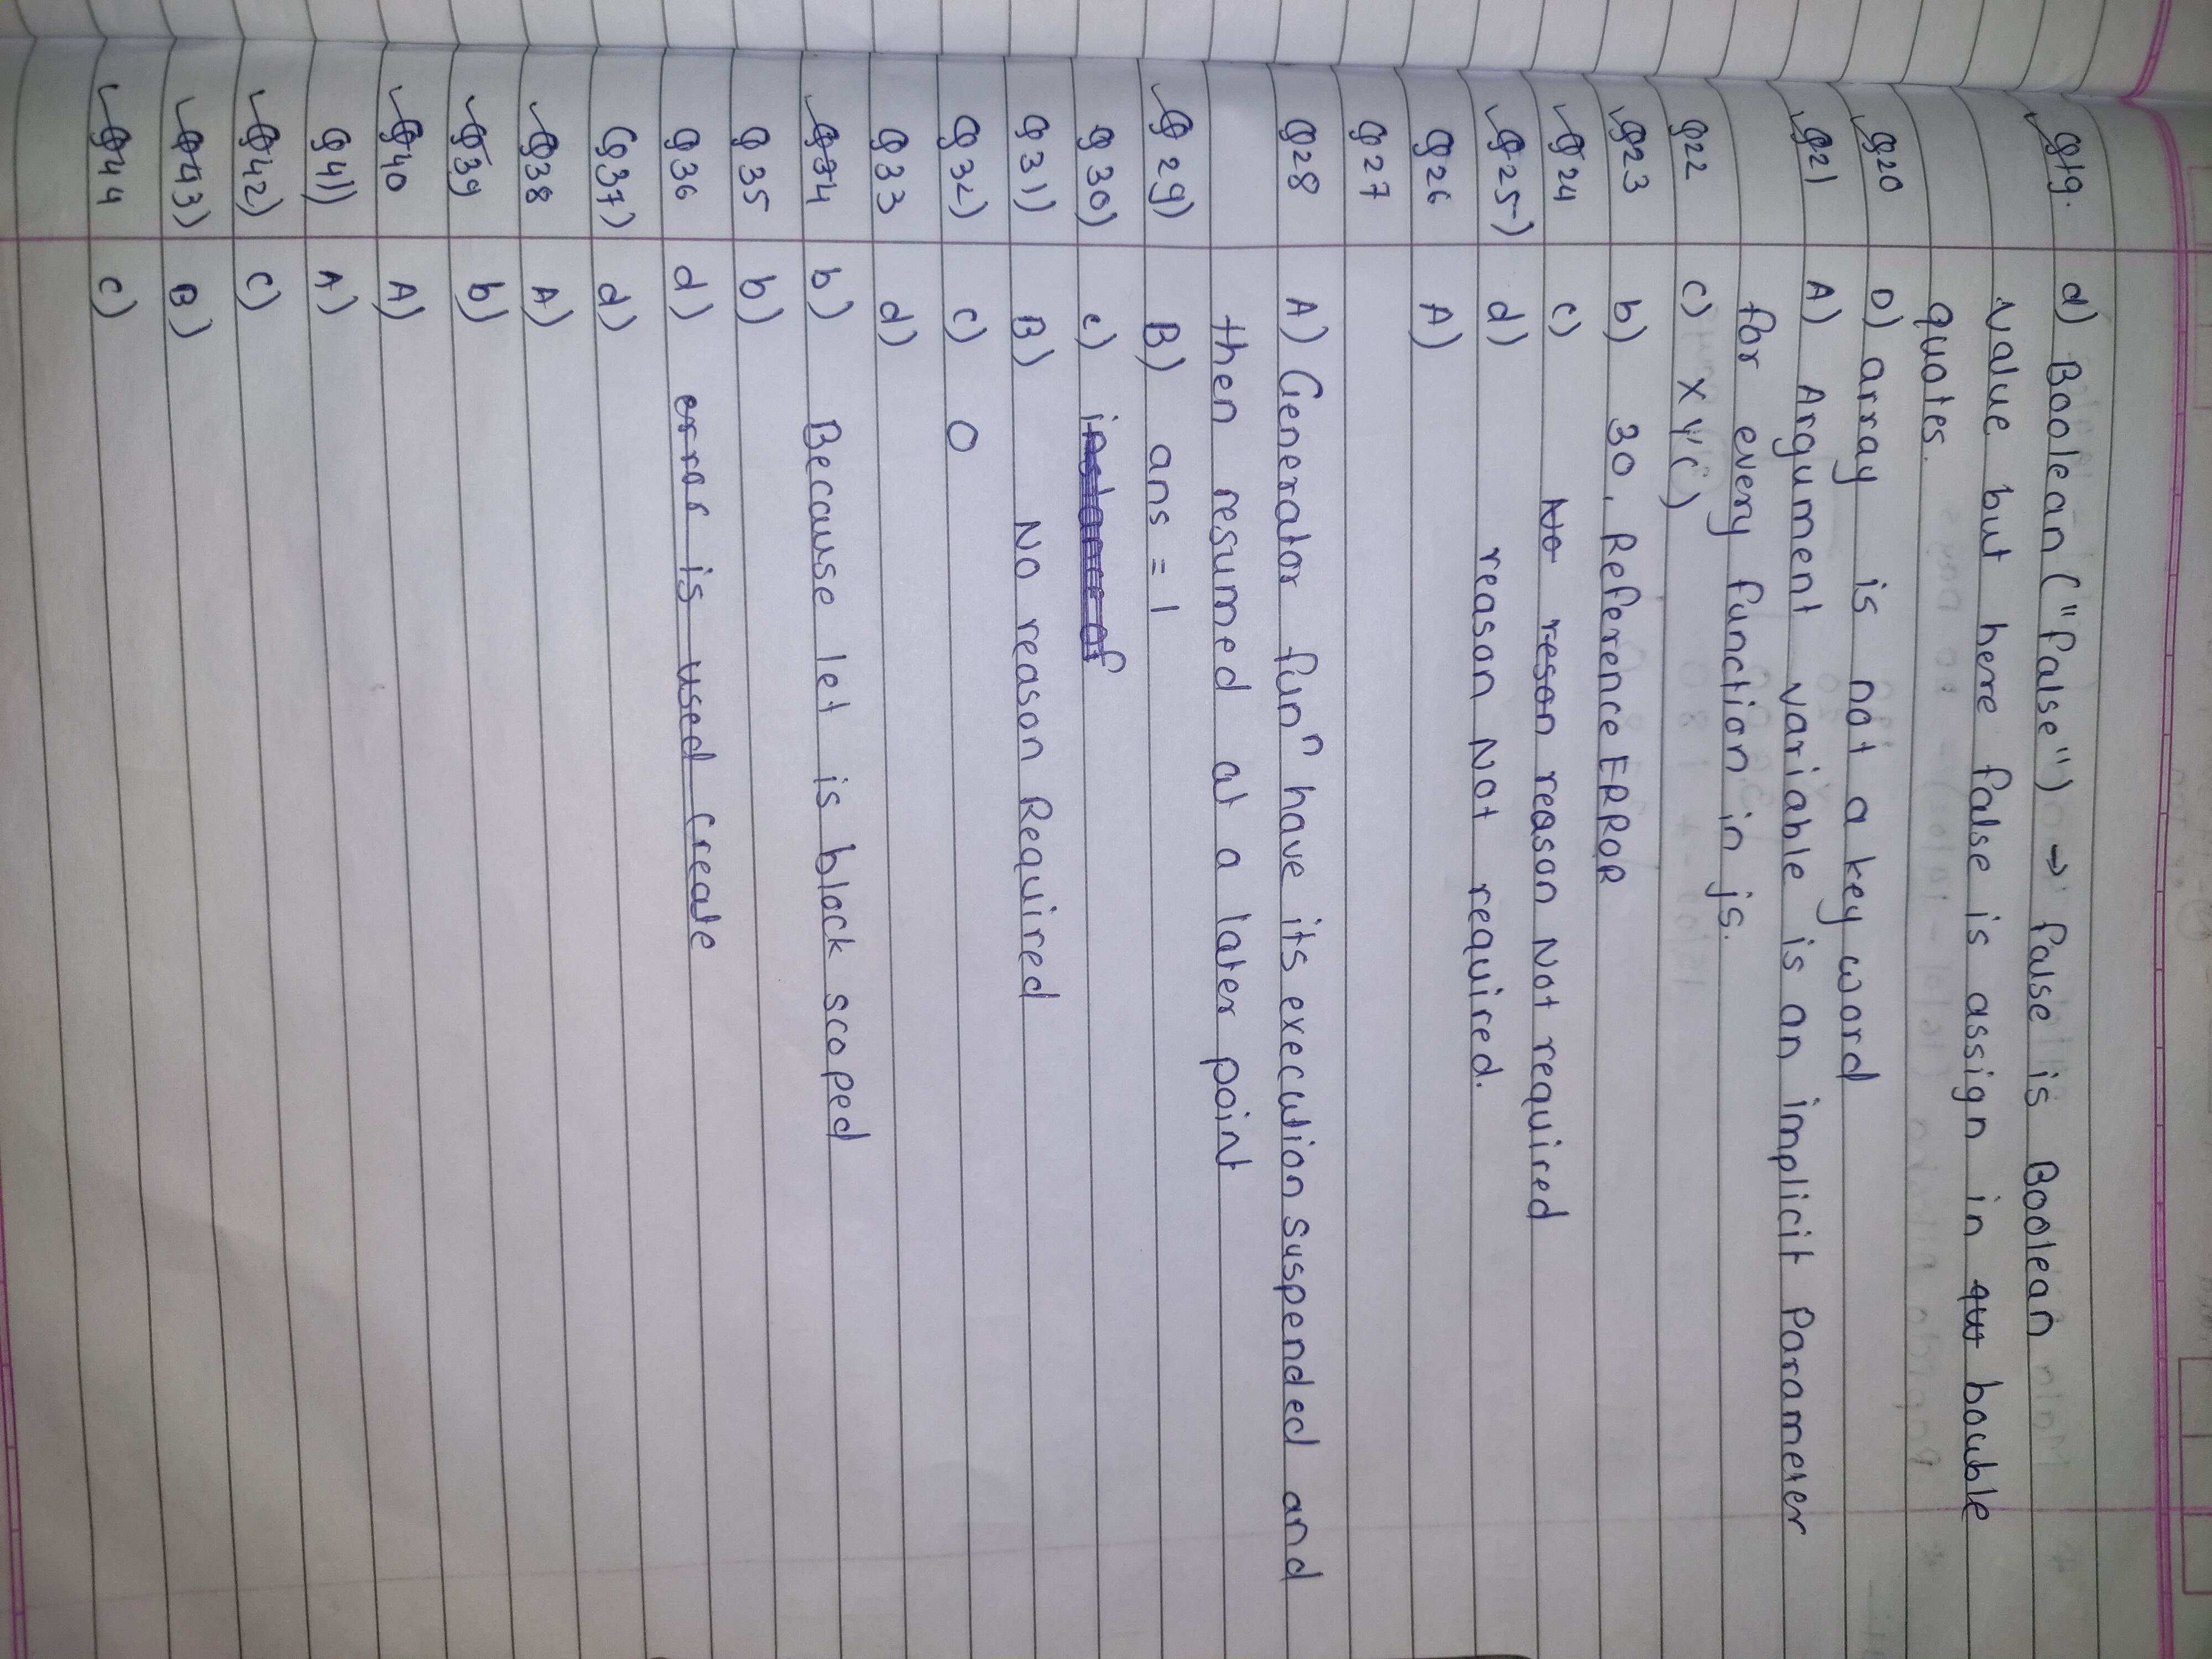 Q19. d) Boolean ("false") → false is Boolean
value but here false is assign in qut bouble
quotes.
Q20 D) array is not a key word
Q21 A) Argument variable is an implicit Parameter
for every function in js.
Q22 c) XY()
Q23 b) 30, Reference ERROR
Q24 c) No reson reason Not required
Q25) d) reason Not required.
Q26 A)
Q27
Q28 A) Generator funⁿ have its execution suspended and
then resumed at a later point
Q29) B) ans = 1
Q30) c) instance of
Q31) B) No reason Required
Q32) c) 0
Q33 d)
Q34 b) Because let is block scoped
Q35 b)
Q36 d) error is used create
Q37) d)
Q38 A)
Q39 b)
Q40 A)
Q41) A)
Q42) c)
Q43) B)
Q44 c)